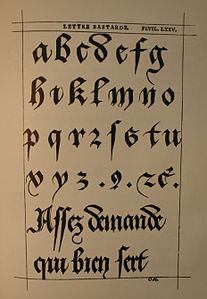 LETTRE BASTARDE. FEVIL. LXXV.
a b c d e f g
h i k l m n o
p q r z s ſ t u
v y z . 9 . &.
Assez demande
qui bien sert